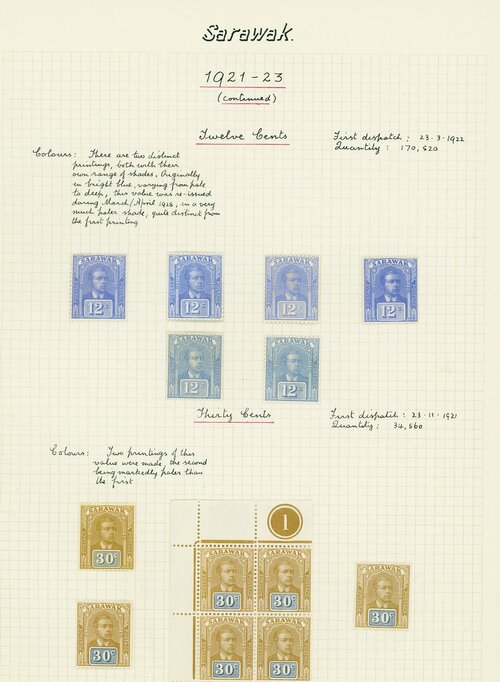 Sarawak.
1921-23
(continued)
Twelve Cents
First dispatch : 23.3.1922
Quantity : 170,520
Colours: There are two distinct
printings, both with their
own range of shades. Originally
in bright blue, varying from pale
to deep, this value was re-issued
during March/April 1928, in a very
much paler shade, quite distinct from
the first printing
SARAWAK SARAWAK SARAWAK SARAWAK
12c 12c 12c 12c
SARAWAK SARAWAK
12c 12c
Thirty Cents
First dispatch : 23.11.1921
Quantity : 34,560
Colours: Two printings of this
value were made, the second
being markedly paler than
the first
1
SARAWAK
30c
SARAWAK SARAWAK
30c 30c
SARAWAK
30c
SARAWAK
30c
SARAWAK SARAWAK
30c 30c